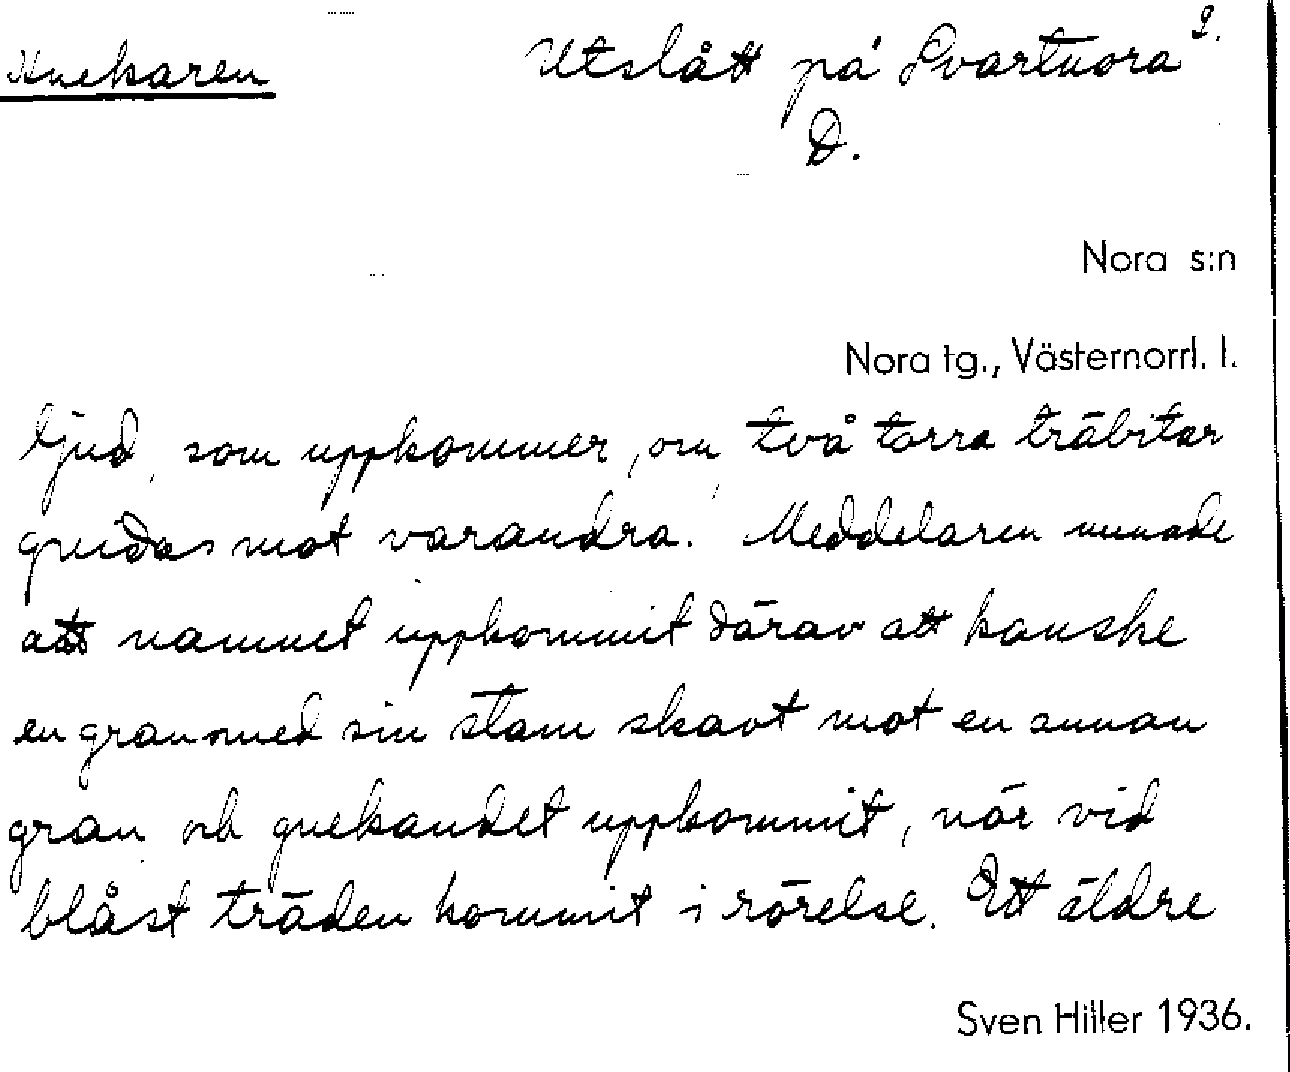 Knekaren
Utslått på Svartnora 2.
D.
Nora s:n
Nora tg., Västernorrl. l.
ljud, som uppkommer, om två torra träbitar
gnidas mot varandra. Meddelaren menade
att namnet uppkommit därav att kanske
en gran med sin stam skavt mot en annan
gran och gnekandet uppkommit, när vid
blåst träden kommit i rörelse. Ett äldre
Sven Hiller 1936.